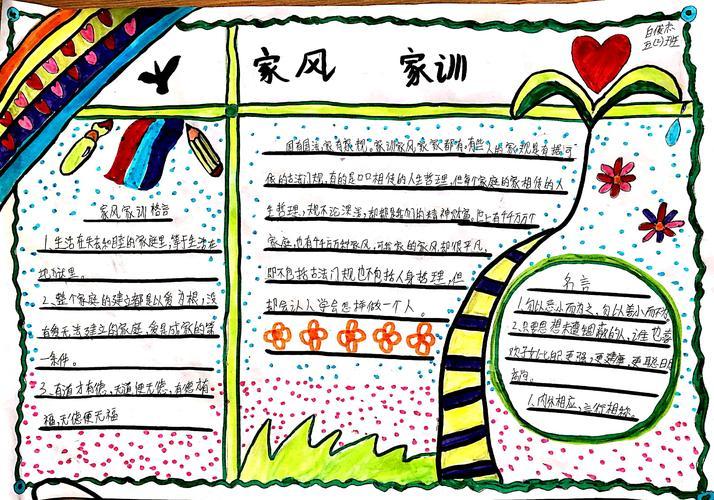 家风 家训
白俊杰
五(2)班
家风家训格言
1.生活在失去和睦的家庭里,等于生活在
地狱里。
2、整个家庭的建立都是以爱为根,没
有爱无法建立的家庭,爱是成家的第
一条件。
3、有道才有德,无道便无德,有德有
福,无德便无福
国有国法,家有家规。家训家风,家家都有。有些人的家规是有据可
依的古法门规,有的是口口相传的人生哲理,但每个家庭的家相传的人
生哲理,规不论深浅,却都是我们的精神财富。世上有千万个
家庭,也有千万种家风,可我家的家风却很平凡,
即不包括古法门规也不包括人身哲理,但
却会让人学会怎样做一个人。
名言
1.勿以恶小而为之,勿以善小而不为
2.只要思想未遭
欢 更强,更健康,更聪
高尚。
1、内外相应,言行相称。